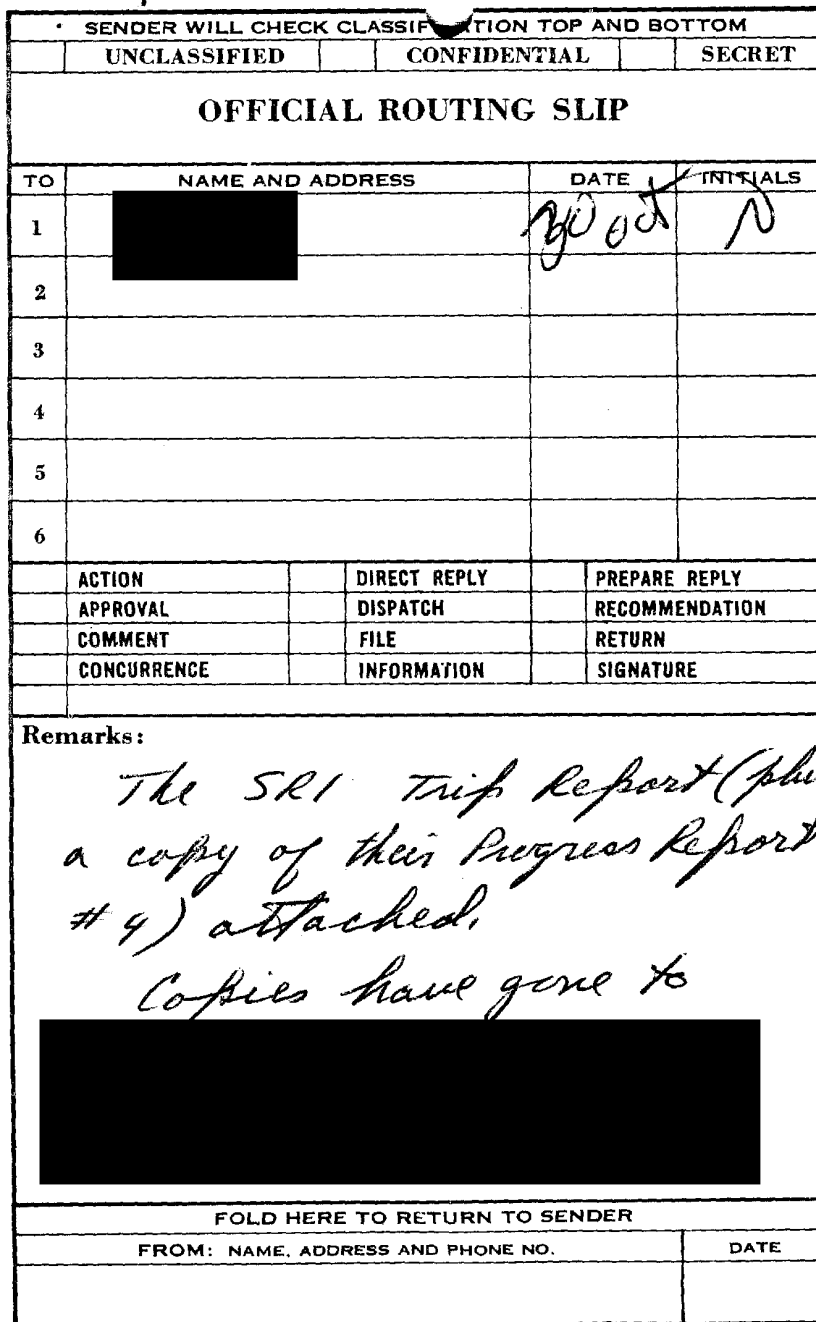 SENDER WILL CHECK CLASSIFICATION TOP AND BOTTOM
UNCLASSIFIED CONFIDENTIAL SECRET
OFFICIAL ROUTING SLIP
TO NAME AND ADDRESS DATE INITIALS
1 oct
2
3
4
5
6
ACTION DIRECT REPLY PREPARE REPLY
APPROVAL DISPATCH RECOMMENDATION
COMMENT FILE RETURN
CONCURRENCE INFORMATION SIGNATURE
Remarks:
The SRI Trip Report (plu
a copy of their Progress Report
#4) attached.
Copies have gone to
FOLD HERE TO RETURN TO SENDER
FROM: NAME, ADDRESS AND PHONE NO. DATE